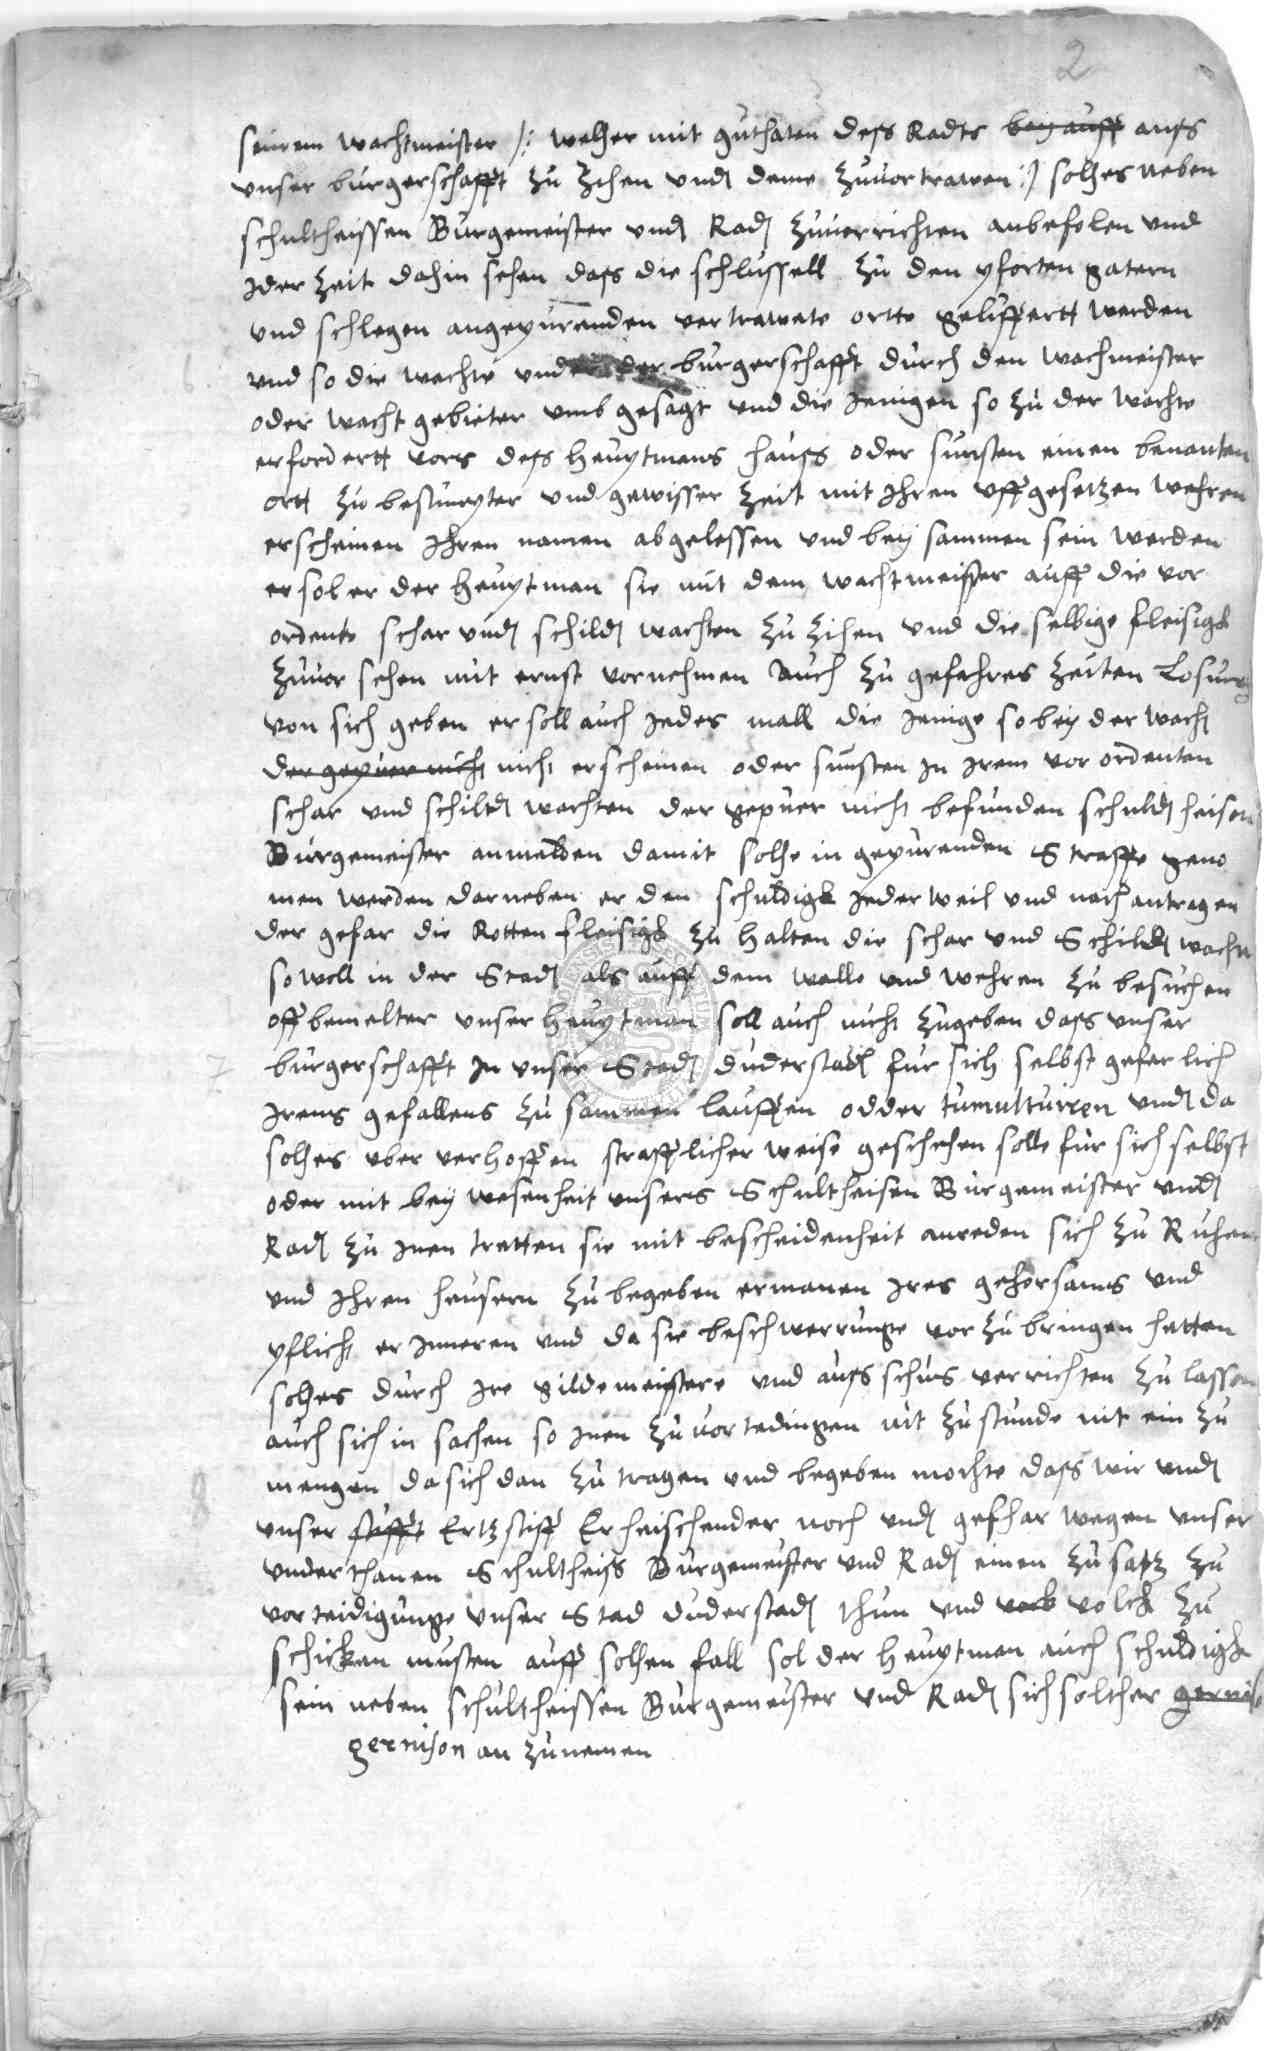 2
seinem wachtmeister /: welher mit guthaten dess Radts bey auff auss
vnser burgerschafft zu Zihen vnd deme Zuuortrawen :/ solhes neben
schultheissen Burgemeister vnd Rad Zuuerrichten anbefolen vnd
Jder Zeit dahin sehen dass die schlussell zu den pforten gatern
vnd schlegen angepurenden vertrawete ortte geliffertt werden
vnd so die wachte vnder der burgerschafft durch den wachmeister
6
oder wacht gebieter vmb gesagt vnd die Jenigen so zu der wachte
erfordertt vors dess heuptmans hauss oder sunsten einen benanten
ortt zu bestimpter vnd gewisser Zeit mit Ihren vffgesetzen wehren
erscheinen Ihren namen abgelessen vnd bey sammen sein werden
er sol er der heuptman sie mit dem wachtmeister auff die vor
ordente schar vnd schild wachten zu Zihen vnd die selbige fleisigk
Zuuor sehen mit ernst vornehmen Auch zu gefahres Zeiten Losung
von sich geben er soll auch Jedes mall die Jenige so bey der wach
der gepuer nicht nicht erscheinen oder sunsten In Irem vor ordenten
schar vnd schiltd wachten der gepuer nicht befunden schuldheisen
Burgemeister anmelden damit solhe in gepurenden Straffe geno
men werden darneben er den schuldigk Jederweil vnd nach antragen
der gefar die Rotten fleisigk zu halten die schar vnd Schild wacht
so woll in der Stad als auff dem walle vnd wehren zu besuchen
offbemelter vnser heuptman soll auch nicht zugeben dass vnser
7
burgerschafft In vnser Stad duderstad fur sich selbst geferlich
Irens gefallens zu sammen lauffen odder tumultuiren vnd da
solhes vber verhoffen strafflicher weise geschehen solle fur sich selbst
oder mit bey wesenheit vnsers Schultheisen Burgemeister vnd
Rad zu Inen tretten sie mit bescheidenheit anreden sich zu Ruhen
vnd Ihren heusern zu begeben ermanen Ires gehorsams vnd
pflicht er Inneren vnd da sie beschwerrunge vor zu bringen hetten
solhes durch Ire gildemeistere vnd ausschus verrichten zu lassen
auch sich in sachen so Inen zu vortedingen nit zustunde nit ein zu
mengen da sich dan zu tragen vnd begeben mochte dass wir vnd
8
vnser stifft Ertzstiff Erheischender noch vnd gefhar wegen vnser
vnderthanen Schultheiss Burgemeister vnd Rad einen zusatz zu
vorteidigunge vnser Stad duderstad thun vnd volck zu
schicken musten auff solhen fall sol der heuptman auch schuldigk
sein neben schultheissen Burgemeister vnd Rad sich solcher gernis
gernison an zunemen